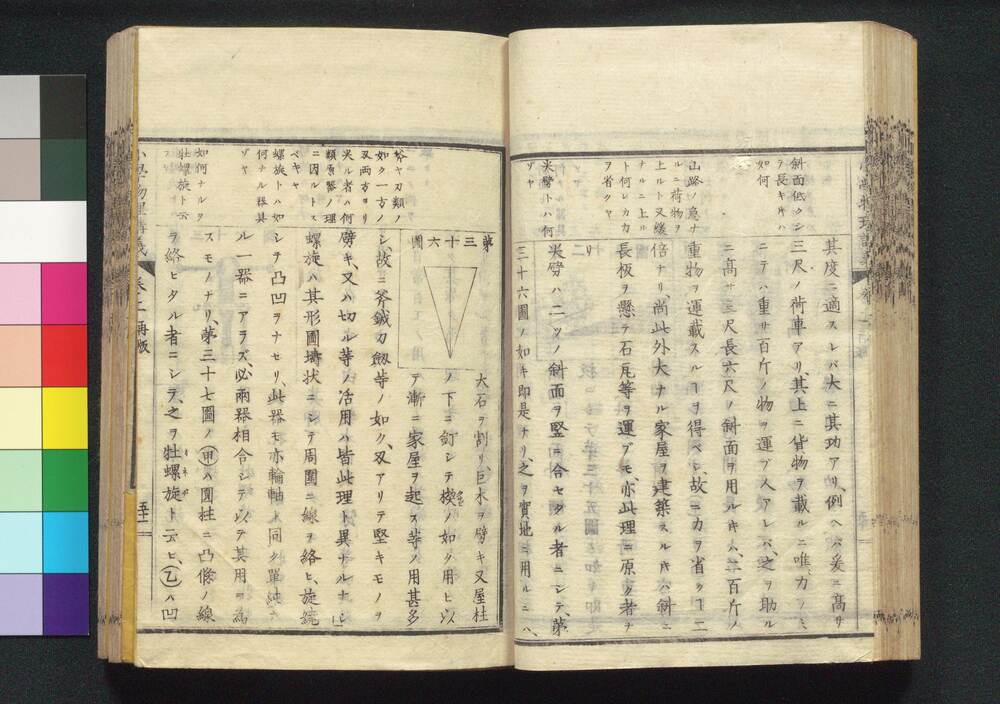 斜面低クシ
ヲ長キキハ
如何
山路ノ應ナ
ルニ荷物ヲ
上ルト又緩
ナルニ上ル
ト何レカカ
ヲ省クヤ
尖劈トハ何
ゾヤ
其度ニ適スレバ大ニ其功アリ、例ヘバ爰ニ高サ
三尺ノ荷車アリ、其上ニ貨物ヲ載ルニ唯、力ノミ
ニテハ重サ百斤ノ物ヲ運ブ人アレバ、之ヲ助ル
ニ高サ三尺長六尺ノ斜面ヲ用ルキハ、二百斤ノ
重物ヲ運載スルヿヲ得ベシ、故ニ力ヲ省クヿ二
倍ナリ、尚此外大ナル家屋ヲ建築スルキハ斜ニ
長板ヲ懸テ石瓦等ヲ運ブモ、亦此理ニ原ク者ナ
リ
尖劈ハ二ツノ斜面ヲ竪ニ合セタル者ニシテ、第
三十六圖ノ如キ即是ナリ、之ヲ實地ニ用ルニハ、
斧ヤ刃類ノ
如ク一方ノ
又両方ヨリ
尖ル者ハ何
類ノ器ノ理
ニ因ルトス
ベキヤ
螺旋トハ如
何ナル器具
ゾヤ
如何ナルヲ
牡螺旋ト云
第三十六圖
大石ヲ割リ、巨木ヲ劈キ又屋柱
ノ下ニ釘シテ楔ノ如ク用ヒ以
テ漸ニ家屋ヲ起ス等ノ用甚多
シ、故ニ斧鉞刀劔等ノ如ク、刃アリテ堅キモノヲ
劈キ、又ハ切ル等ノ活用ハ皆此理ト異ナルナシ
螺旋ハ其形圓壔状ニシテ周圍ニ線ヲ絡ヒ、旋繞
シテ凸凹ヲナセリ、此器モ亦輪軸ト同ク單純ナ
ル一器ニアラズ、必兩器相合シテ以テ其用ヲ為
スモノナリ、第三十七圖ノ甲ハ圓柱ニ凸條ノ線
ヲ絡ヒタル者ニシテ、之ヲ牡螺旋ト云ヒ、乙ハ凹
小學物理講義 卷之二 再版